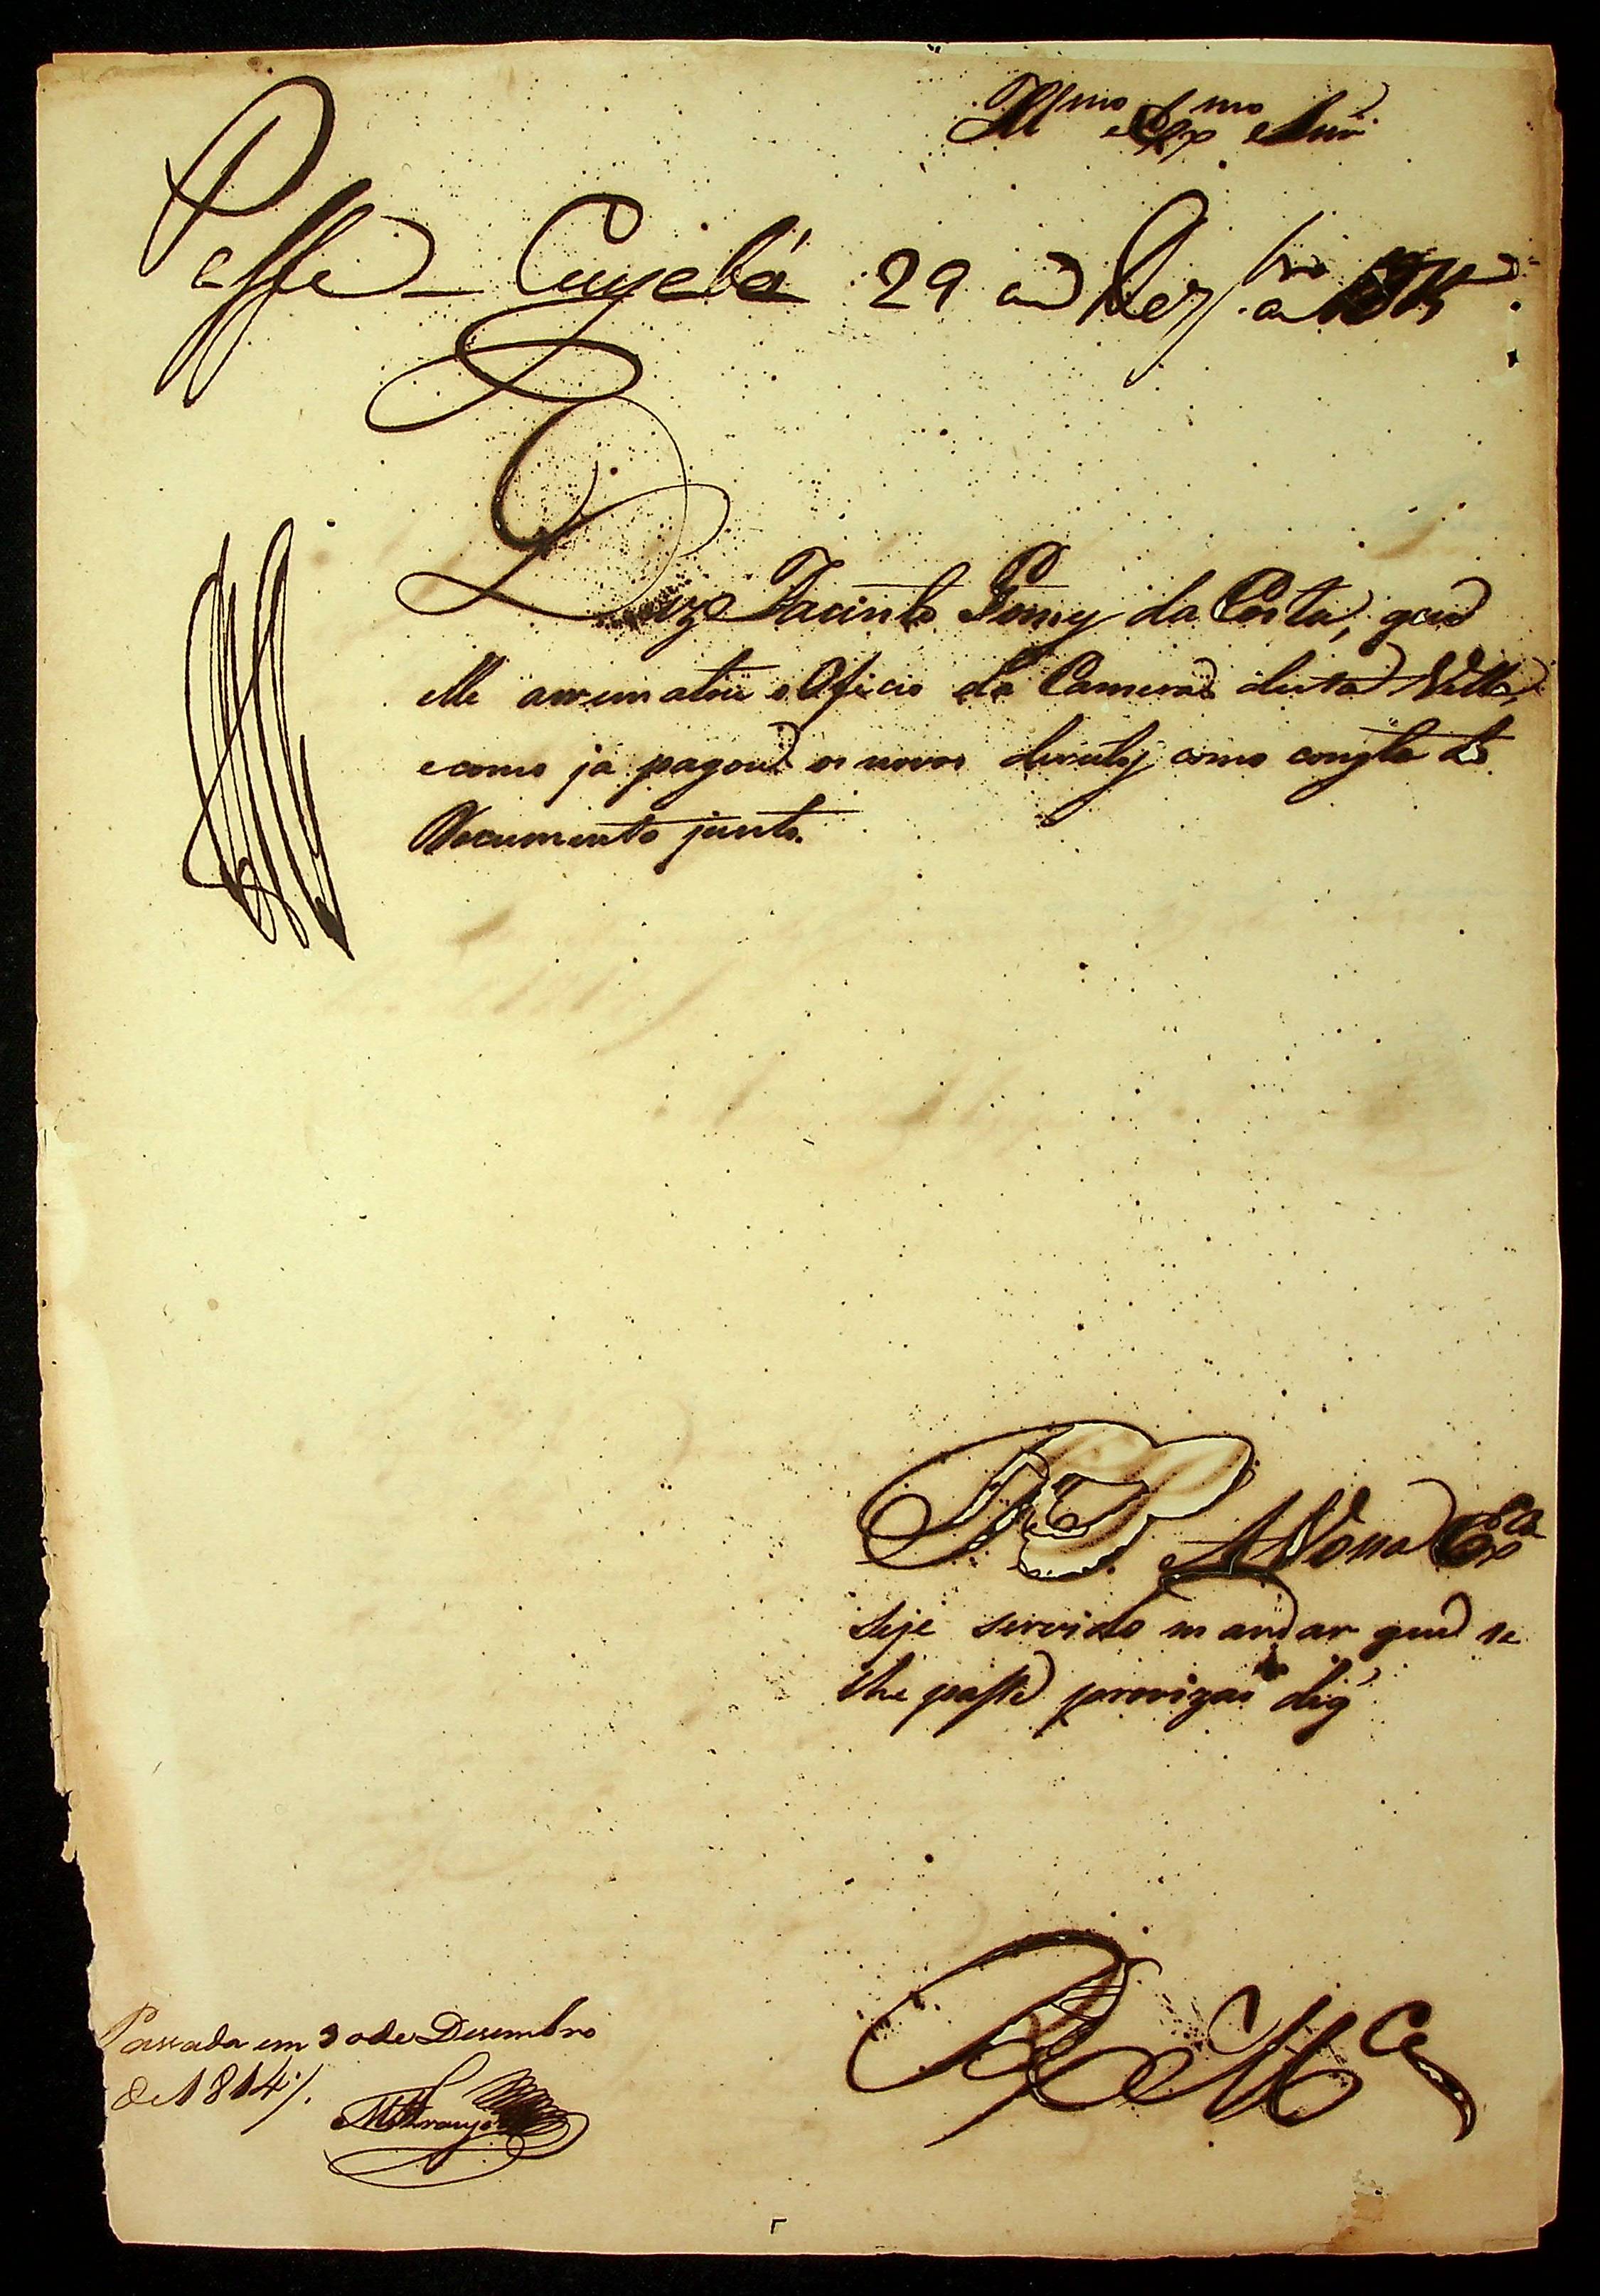 Illmo e Exmo Snr
Passe Cuyabá 29 de Dezbro de 1814
Diz Jacinto Gomes da Costa, que
elle arrematou o Oficio da Camera desta Villa,
e como já pagou os novos direitos como consta do
Documento junto.
P. A Vossa Exca
seje servido mandar que se
lhe passe provizaõ
R M Ce
Passada em 30 de Desembro
de 1814 /.
Araujo